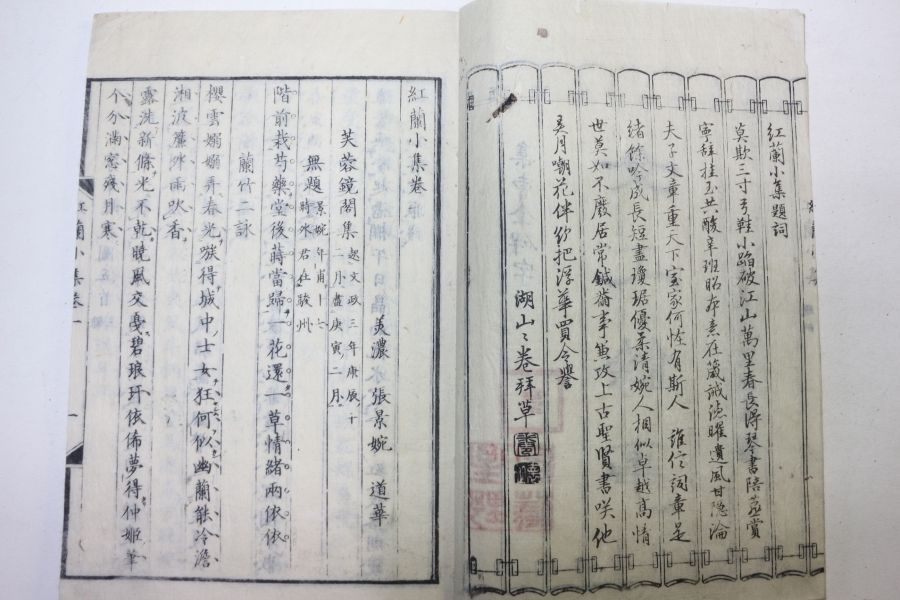 紅蘭小集題詞
莫欺三寸弓鞋小踏破江山萬里春長得琴書陪燕賞
寧辭桂玉共酸辛班昭本意在箴誡德曜遺風甘隠淪
夫子文章重天下室家何怪有斯人 誰信詞章是
緒餘吟成長短盡瓊琚優柔清婉人相似卓越高情
世莫如不廢居常鍼黹事兼攻上古聖賢書咲他
月嘲花伴 把浮華買令譽
湖山 卷拜草
紅蘭小集卷
美濃 張景婉 道華
芙蓉鏡閣集 起文政三年庚辰十
一月盡庚寅二月
無題 景婉年甫十七
時外君在駿州
階前栽芍藥堂後蒔當歸一花還一草情緒兩依依
蘭竹二詠
櫻雲嫋嫋弄春光簇得城中士女狂何似幽蘭能冷澹
湘波簾外雨吹香
露洗新條光不乾曉風交戞碧琅玕依佈夢得仲姬筆
个分滿窓月寒
紅蘭小集卷一 一